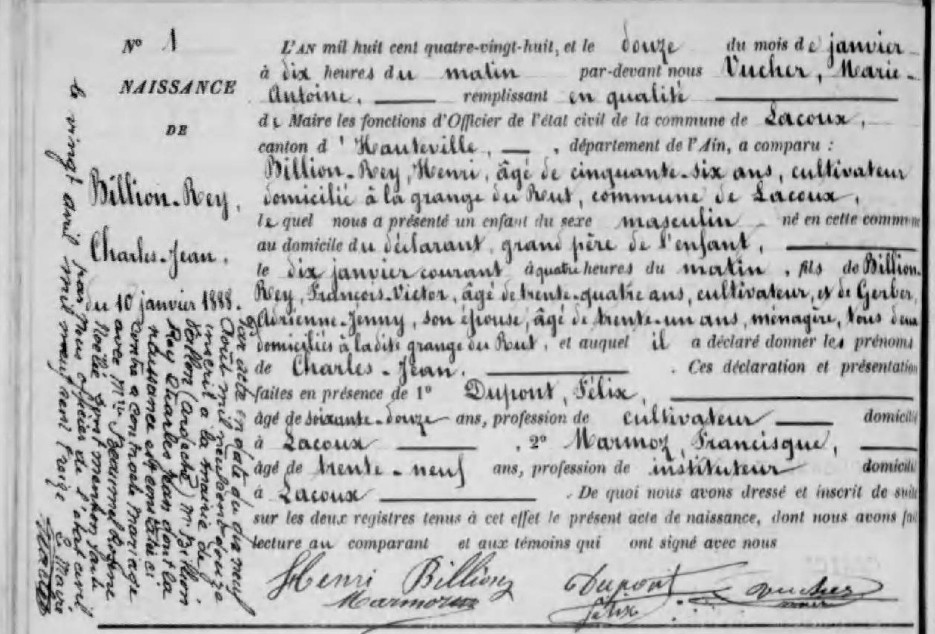 N° 1
NAISSANCE
DE
Billion-Rey,
Charles-Jean.
du 10 janvier 1888.
L'AN mil huit cent quatre-vingt-huit, et le douze du mois de janvier
à dix heures du matin par-devant nous Vucher, Marie-
Antoine, remplissant en qualité
de Maire les fonctions d'Officier de l'état civil de la commune de Lacoux,
canton d'Hauteville, , département de l'Ain, a comparu :
Billion-Rey, Henri, âgé de cinquante-six ans, cultivateur
domicilié à la grange du Reut, commune de Lacoux,
lequel nous a présenté un enfant du sexe masculin né en cette commune
au domicile du déclarant, grand père de l'enfant,
le dix janvier courant à quatre heures du matin, fils de Billion-
Rey, François-Victor, âgé de trente-quatre ans, cultivateur, et de Gerber,
Adrienne-Jenny, son épouse, âgée de trente-un ans, ménagère, tous deux
domiciliés à la dite grange du Reut, et auquel il a déclaré donner les prénoms
de Charles-Jean. . Ces déclaration et présentation
faites en présence de 1° Dupont, Félix,
âgé de soixante-douze ans, profession de cultivateur domicilié
à Lacoux , 2° Marmoz, Francisque,
âgé de trente-neuf ans, profession de instituteur domicilié
à Lacoux . De quoi nous avons dressé et inscrit de suite
sur les deux registres tenus à cet effet le présent acte de naissance, dont nous avons fait
lecture au comparant et aux témoins qui ont signé avec nous
Henri Billion
Marmoz
Dupont
Félix
Vucher
maire
Par acte en date du dix neuf
Août mil neuf cent douze
inscrit à la mairie de
(Ardèche) M. Billion
Rey Charles Jean dont la
naissance est constatée ci
contre a contracté mariage
avec Mlle
dont mention faite
par nous officier de l'état civil
le vingt avril mil neuf cent treize